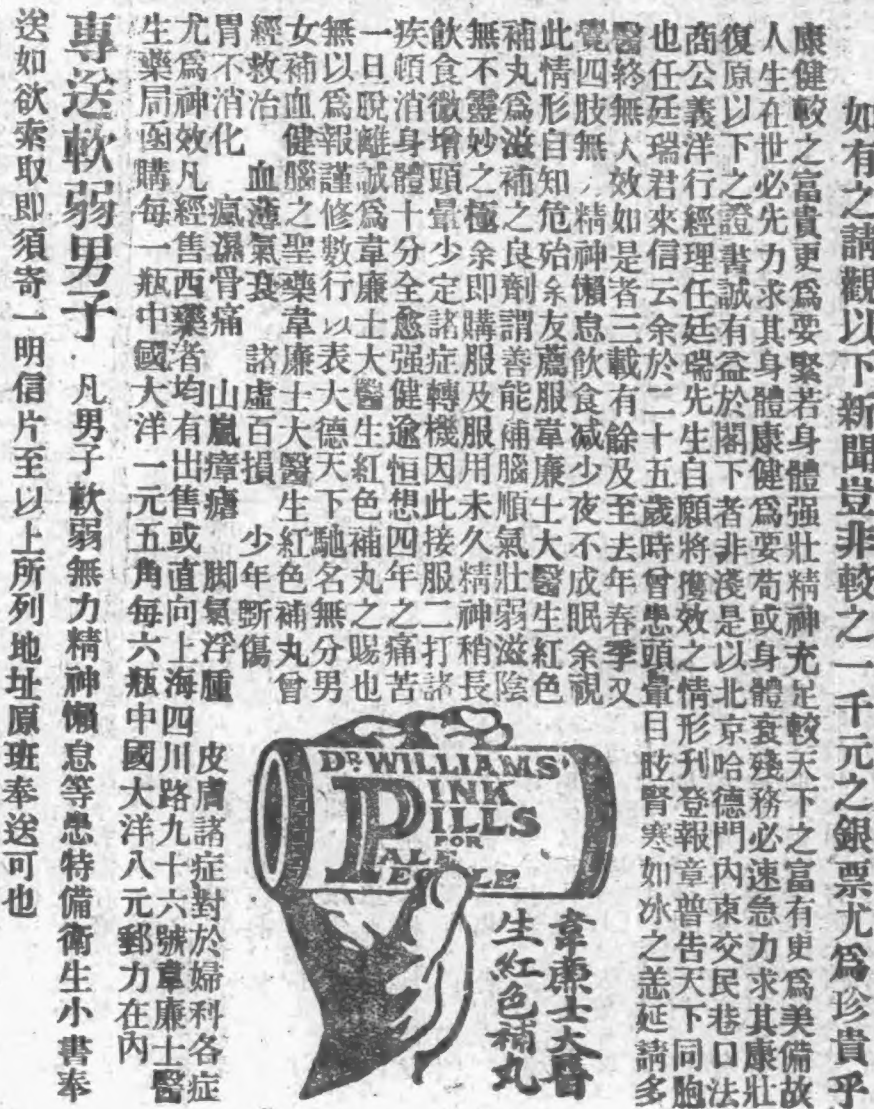 如有之請觀以下新聞豈非較之一千元之銀票尤爲珍貴乎
康健較之富貴更爲要緊若身體强壯精神充足較天下之富有更爲美備故
人生在世必先力求其身體康健爲要苟或身體衰殘務必速急力求其康壯
復原以下之證書誠有益於閣下者非淺是以北京哈德門內東交民巷口法
商公義洋行經理任廷瑞先生自願將獲效之情形刋登報章普告天下同胞
也任廷瑞君來信云余於二十五歲時曾患頭暈目眩腎寒如冰之恙延請多
醫終無人效如是者三載有餘及至去年春季又
覺四肢無 精神懶怠飲食减少夜不成眠余視
此情形自知危殆余友薦服韋廉士大醫生紅色
補丸爲滋補之良劑謂善能補腦順氣壯弱滋陰
無不靈妙之極余即購服及服用未久精神稍長
飲食微增頭暈少定諸症轉機因此接服二打諸
疾頓消身體十分全愈强健逾恒想四年之痛苦
一日脫離誠爲韋廉士大醫生紅色補丸之賜也
無以爲報謹修數行以表大德天下馳名無分男
女補血健腦之聖藥韋廉士大醫生紅色補丸曾
經救治 血薄氣衰 諸虛百損 少年斲傷
胃不消化 瘋濕骨痛 山嵐瘴瘧 脚氣浮腫 皮膚諸症對於婦科各症
尤爲神效凡經售西藥者均有出售或直向上海四川路九十六號韋廉士醫
生藥局函購每一瓶中國大洋一元五角每六瓶中國大洋八元郵力在內
專送軟弱男子 凡男子軟弱無力精神懶怠等患特備衛生小書奉
送如欲索取即須寄一明信片至以上所列地址原班奉送可也
DR. WILLIAMS'
PINK
PILLS
FOR
PALE
PEOPLE
韋廉士大醫
生紅色補丸